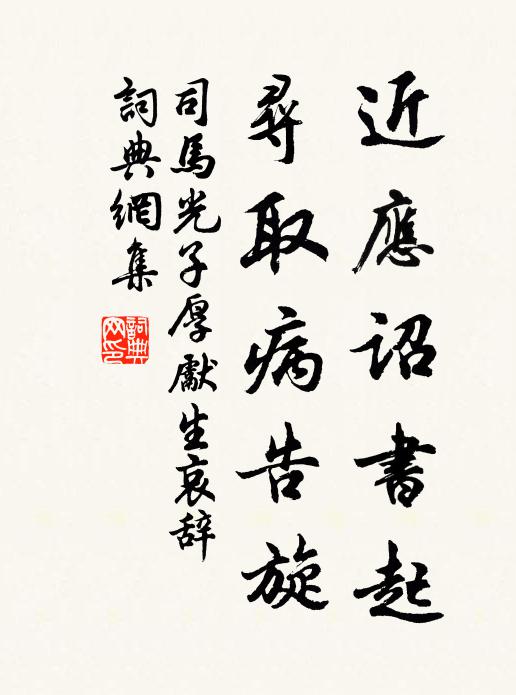 近應詔書起
尋取病告旋
司馬光子厚獻生哀辞
詞典網集
詞典网印